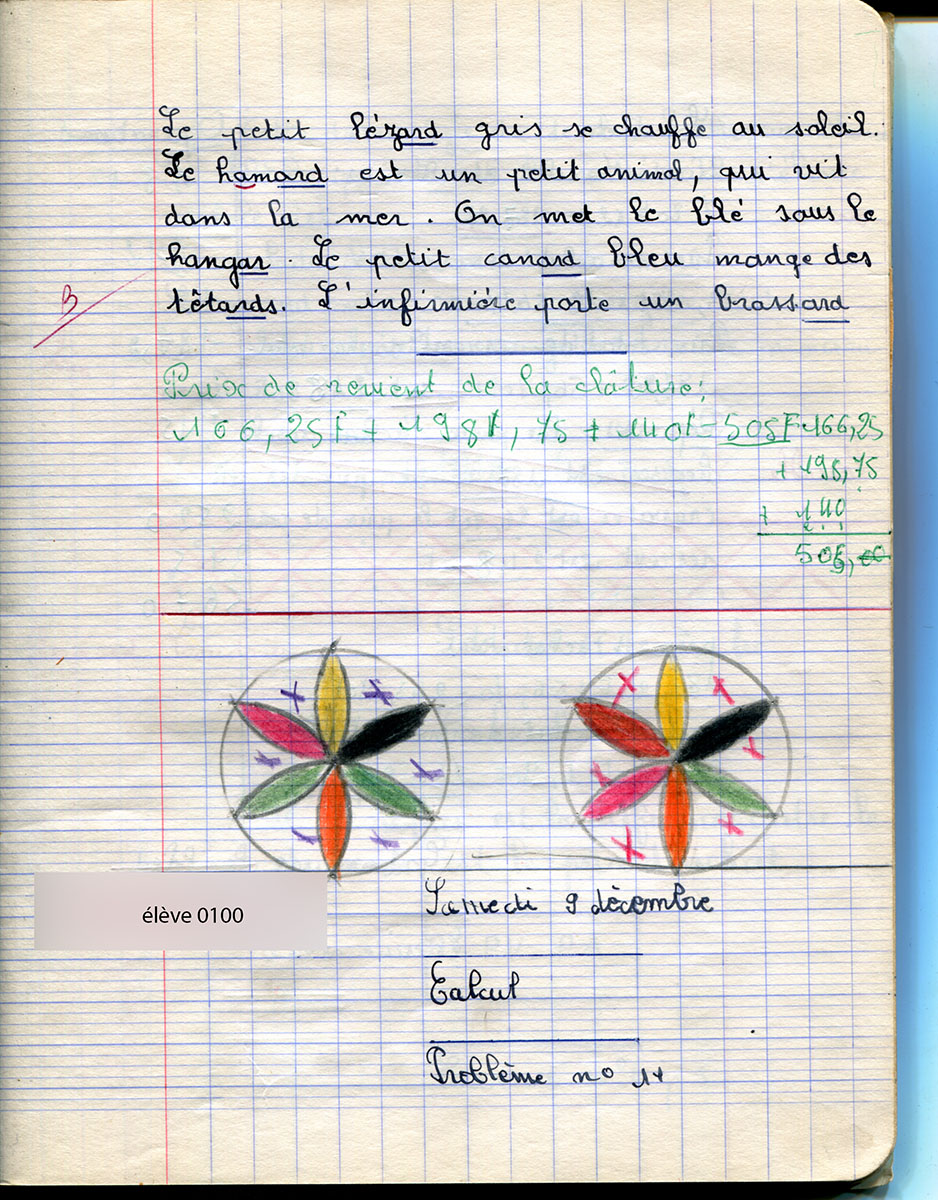 Le petit lézard gris se chauffe au soleil.
Le hamard est un petit animal, qui vit
dans la mer. On met le blé sous le
hangar. Le petit canard bleu mange des
têtards. L'infirmière porte un brassard
B
Prix de revient de la clâture:
166,25F + 198F,75 + 140F = 505F 166,25
+ 198,75
+ 140
505,00
élève 0100
Samedi 9 décembre
Calcul
Problème no